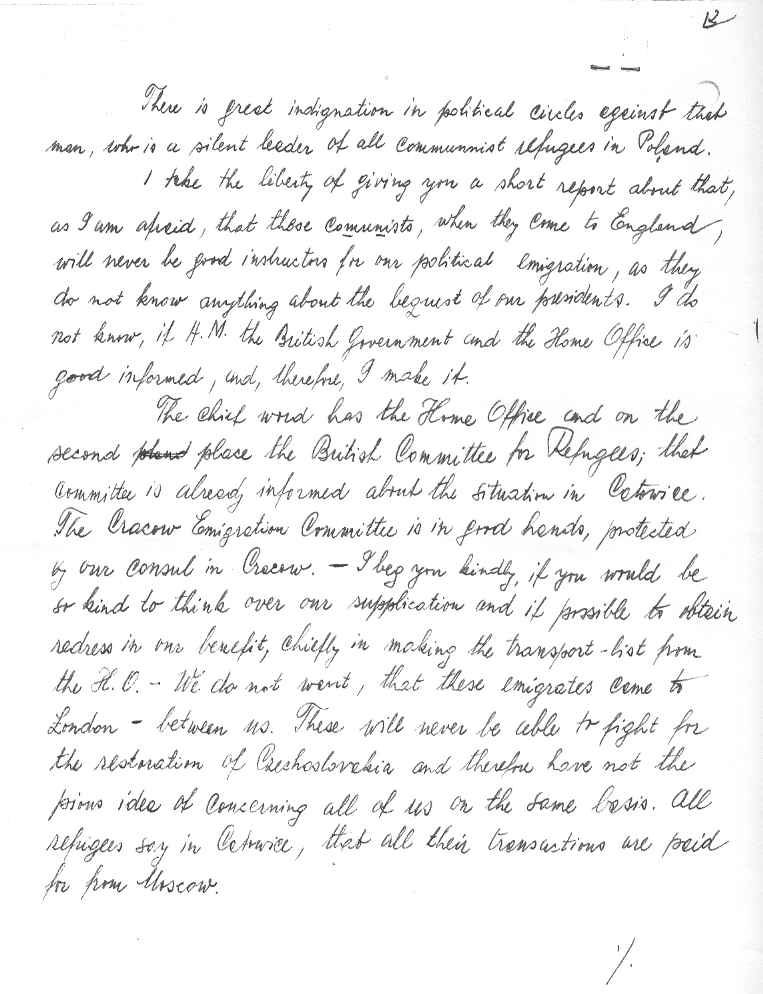 There is great indignation in political circles against that
man, who is a silent leader of all communnist refugees in Poland.
I take the liberty of giving you a short report about that,
as I am afreid, that these comunists, when they come to England,
will never be good instructors for our political emigration, as they
do not know anything about the bequest of our presidents. I do
not know, if H.M. the British Government and the Home Office is
good informed, and, therefore, I make it.
The chief word has the Home Office and on the
second place the British Committee for Refugees; that
Committee is already informed about the situation in Catowice.
The Cracow Emigration Committee is in good hands, protected
by our consul in Cracow. – I beg you kindly, if you would be
so kind to think over our supplication and if possible to obtain
redress in our benefit, chiefly in making the transport-list from
the H.O. – We do not want, that these emigrates come to
London – between us. These will never be able to fight for
the restoration of Czechoslovakia and therefore have not the
pious idea of concerning all of us on the same basis. All
refugees say in Catowice, that all their transactions are paid
for from Moscow.
./.